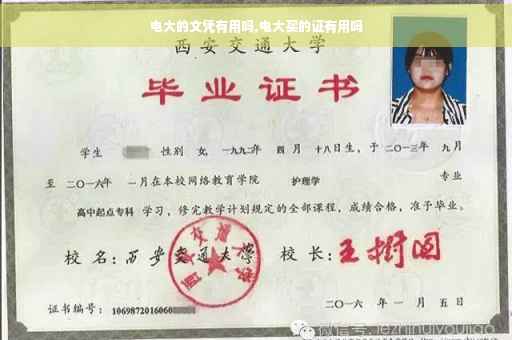 电大的文凭有用吗,电大买的证有用吗
西安交通大学
毕业证书
学生 性别 女, 一九九二年 四 月 十八日生, 于 二〇一三年 九月
至 二〇一六年 一月在本校网络教育学院 护理学 专业
高中起点专科 学习, 修完教学计划规定的全部课程, 成绩合格, 准予毕业。
校 名: 西安交通大学 校 长: 王树国
西安交通大学
证书编号: 1069872016060
二〇一六 年 一 月 五 日
微信号: jezhihuiyoujiao